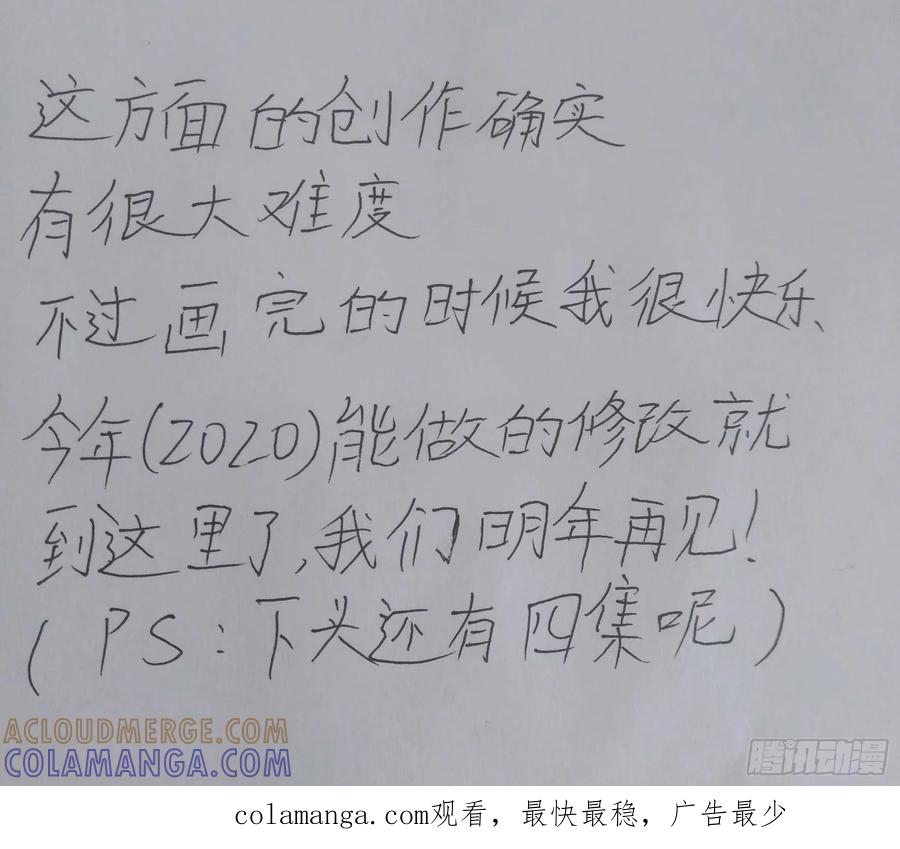 这方面的创作确实
有很大难度
不过画完的时候我很快乐、
今年(2020)能做的修改就
到这里了,我们明年再见!
(PS:下头还有四集呢)
ACLOUDMERGE.COM
COLAMANGA.COM
腾讯动漫
colamanga.com观看，最快最稳，广告最少